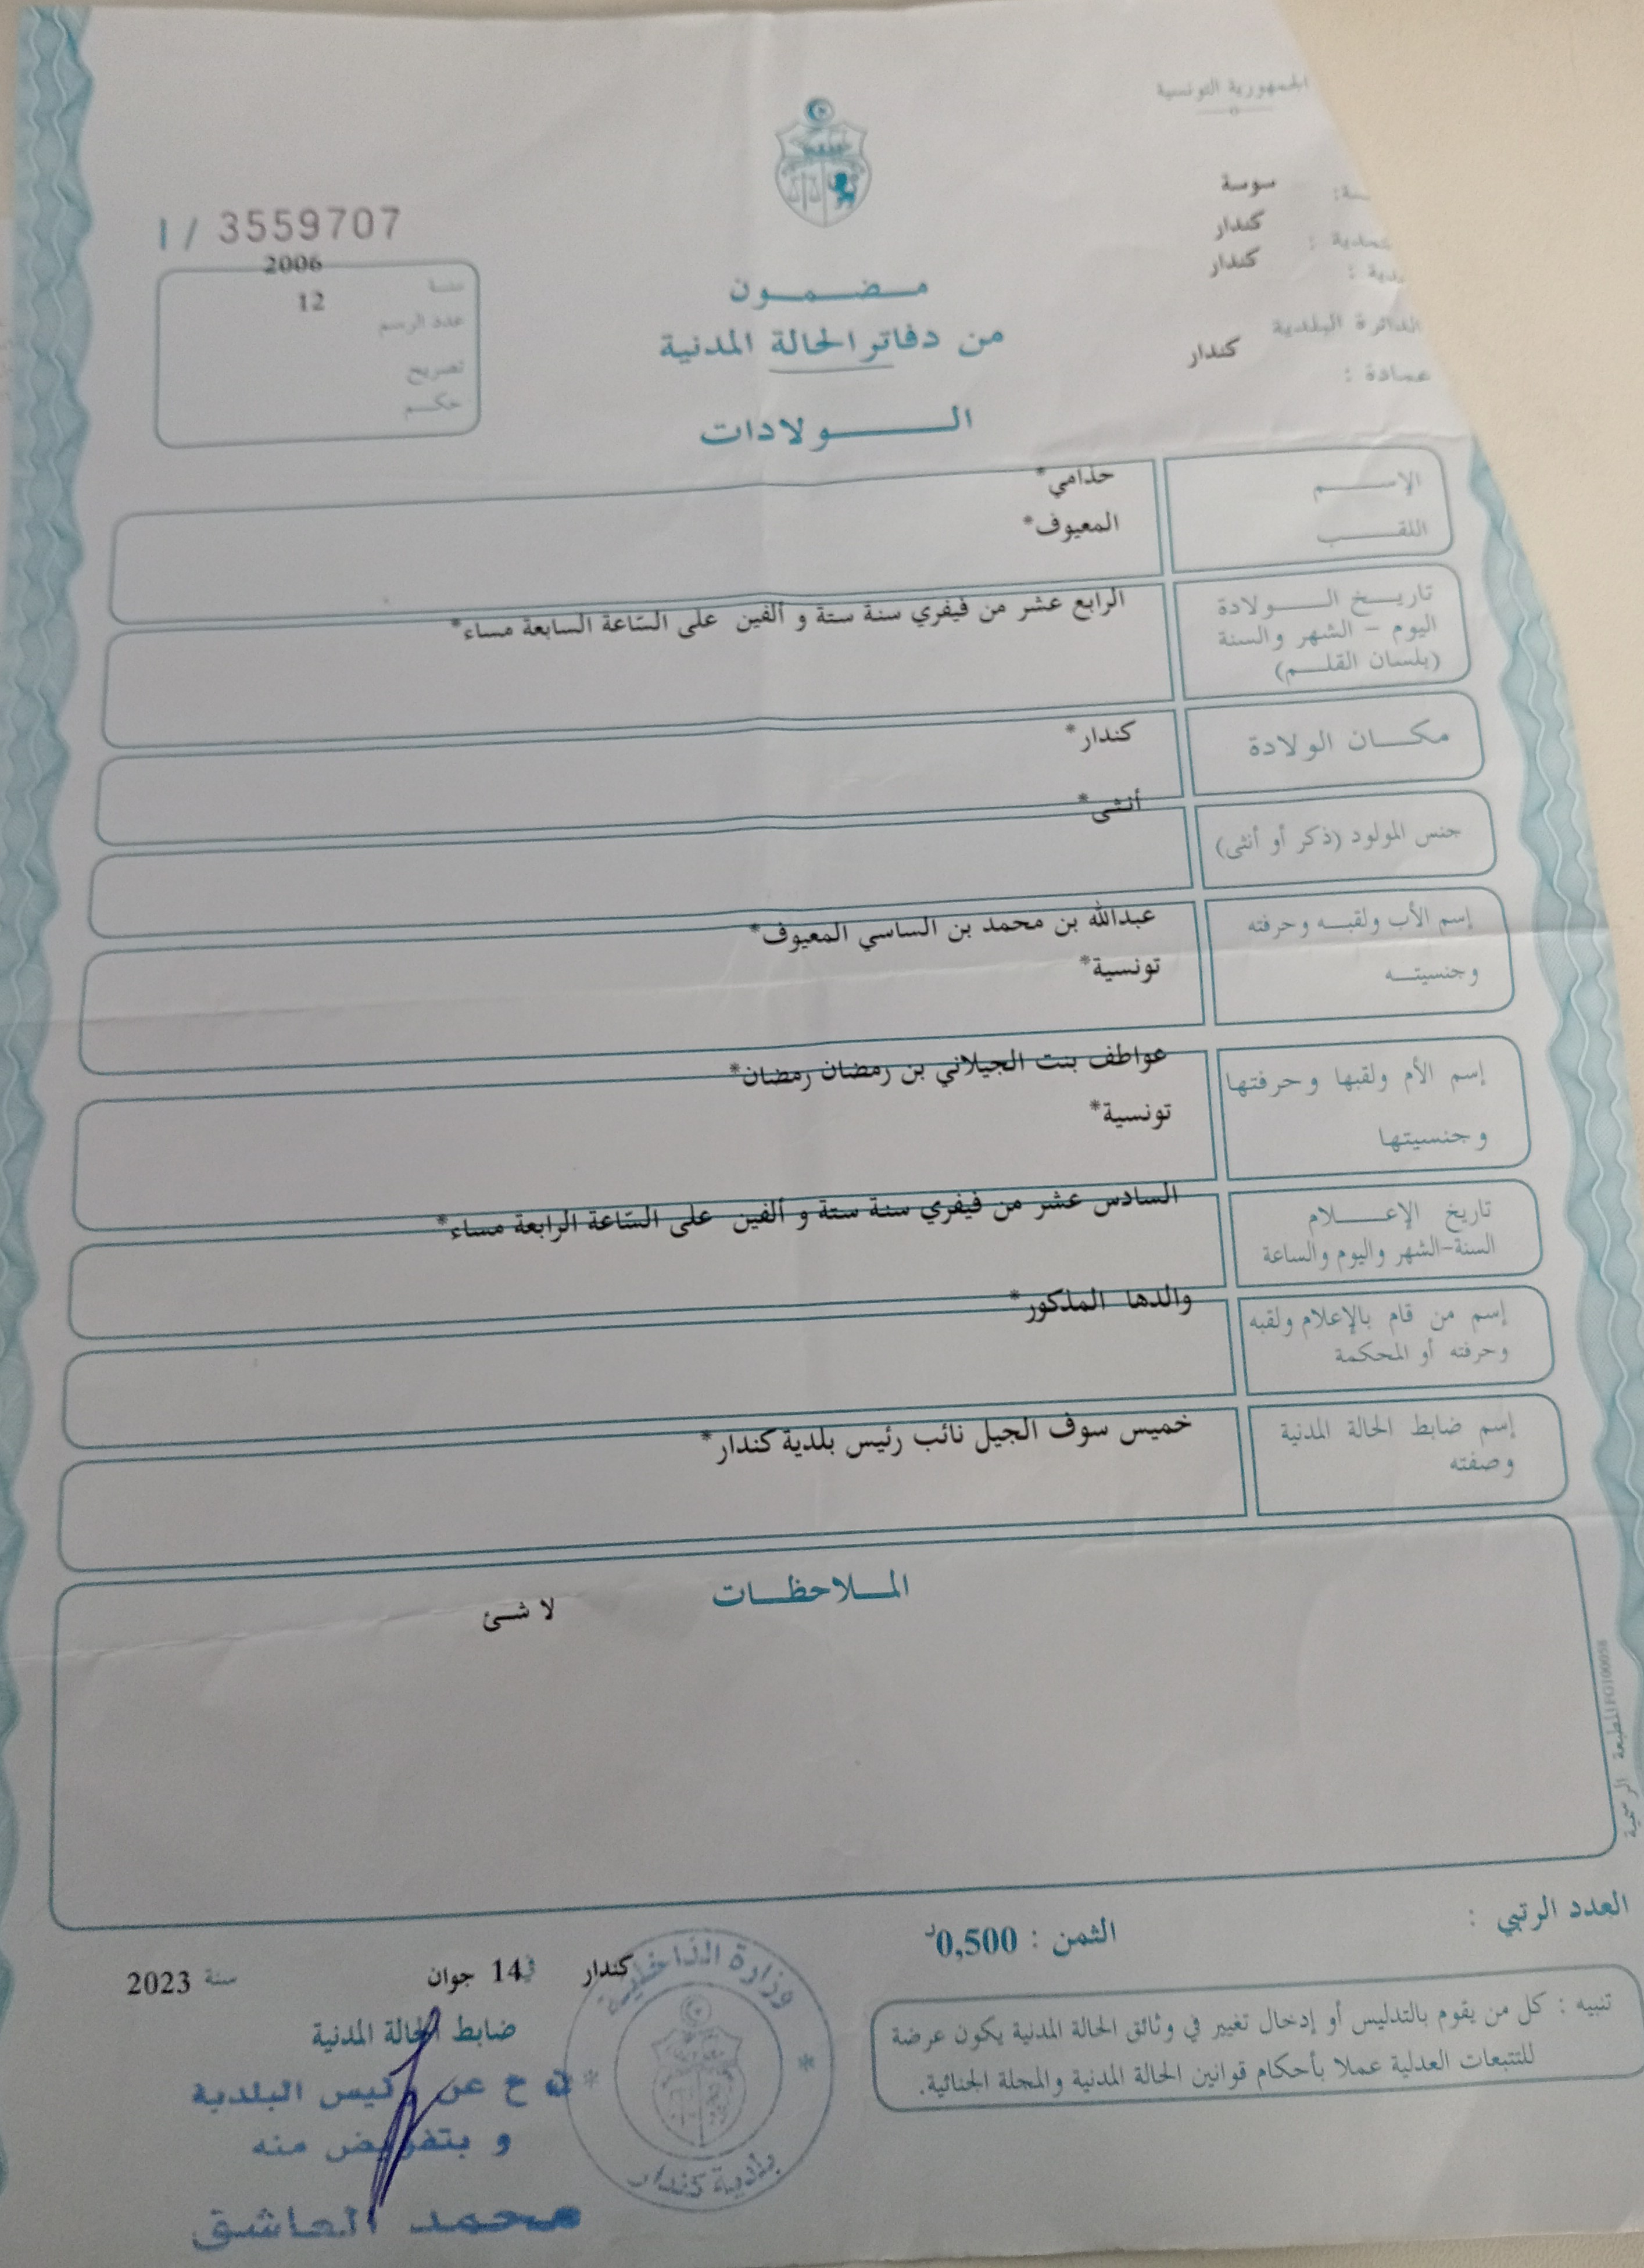 الجمهورية التونسية
سوسة
كندار
كندار
الدائرة البلدية
كندار
عمادة :
I / 3559707
سنة 2006
عدد الرسم 12
تصريح
حكم
مضمون
من دفاتر الحالة المدنية
الولادات
الإسم حذامي*
اللقب المعيوف*
تاريخ الولادة
اليوم - الشهر والسنة
(بلسان القلم)
الرابع عشر من فيفري سنة ستة و ألفين على السّاعة السابعة مساء*
مكان الولادة كندار*
جنس المولود (ذكر أو أنثى) أنثى*
إسم الأب ولقبه وحرفته عبدالله بن محمد بن الساسي المعيوف*
وجنسيته تونسية*
إسم الأم ولقبها وحرفتها عواطف بنت الجيلاني بن رمضان رمضان*
وجنسيتها تونسية*
تاريخ الإعلام
السنة-الشهر واليوم والساعة
السادس عشر من فيفري سنة ستة و ألفين على السّاعة الرابعة مساء*
إسم من قام بالإعلام ولقبه
وحرفته أو المحكمة
والدها المذكور*
إسم ضابط الحالة المدنية
وصفته
خميس سوف الجيل نائب رئيس بلدية كندار*
الملاحظات
لا شئ
المطبعة الرسمية
العدد الرتبي :
الثمن : 0,500د
كندار في 14 جوان سنة 2023
ضابط الحالة المدنية
ح عن رئيس البلدية
و بتفويض منه
محمد العاشق
وزارة الداخلية
بلدية كندار
تنبيه : كل من يقوم بالتدليس أو إدخال تغيير في وثائق الحالة المدنية يكون عرضة
للتتبعات العدلية عملا بأحكام قوانين الحالة المدنية والمجلة الجنائية.